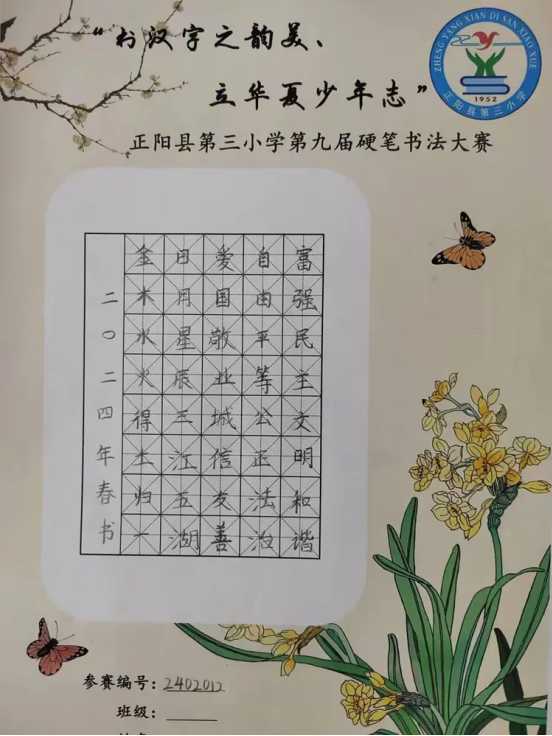 “书汉字之韵美、
立华夏少年志”
ZHENG YANG XIAN DI SAN XIAO XUE
1952
正阳县第三小学
正阳县第三小学第九届硬笔书法大赛
富强民主文明和谐
自由平等公正法治
爱国敬业城信友善
日月星辰三江五湖
金木水火得土归一
二〇二四年春书
参赛编号：2402012
班级：